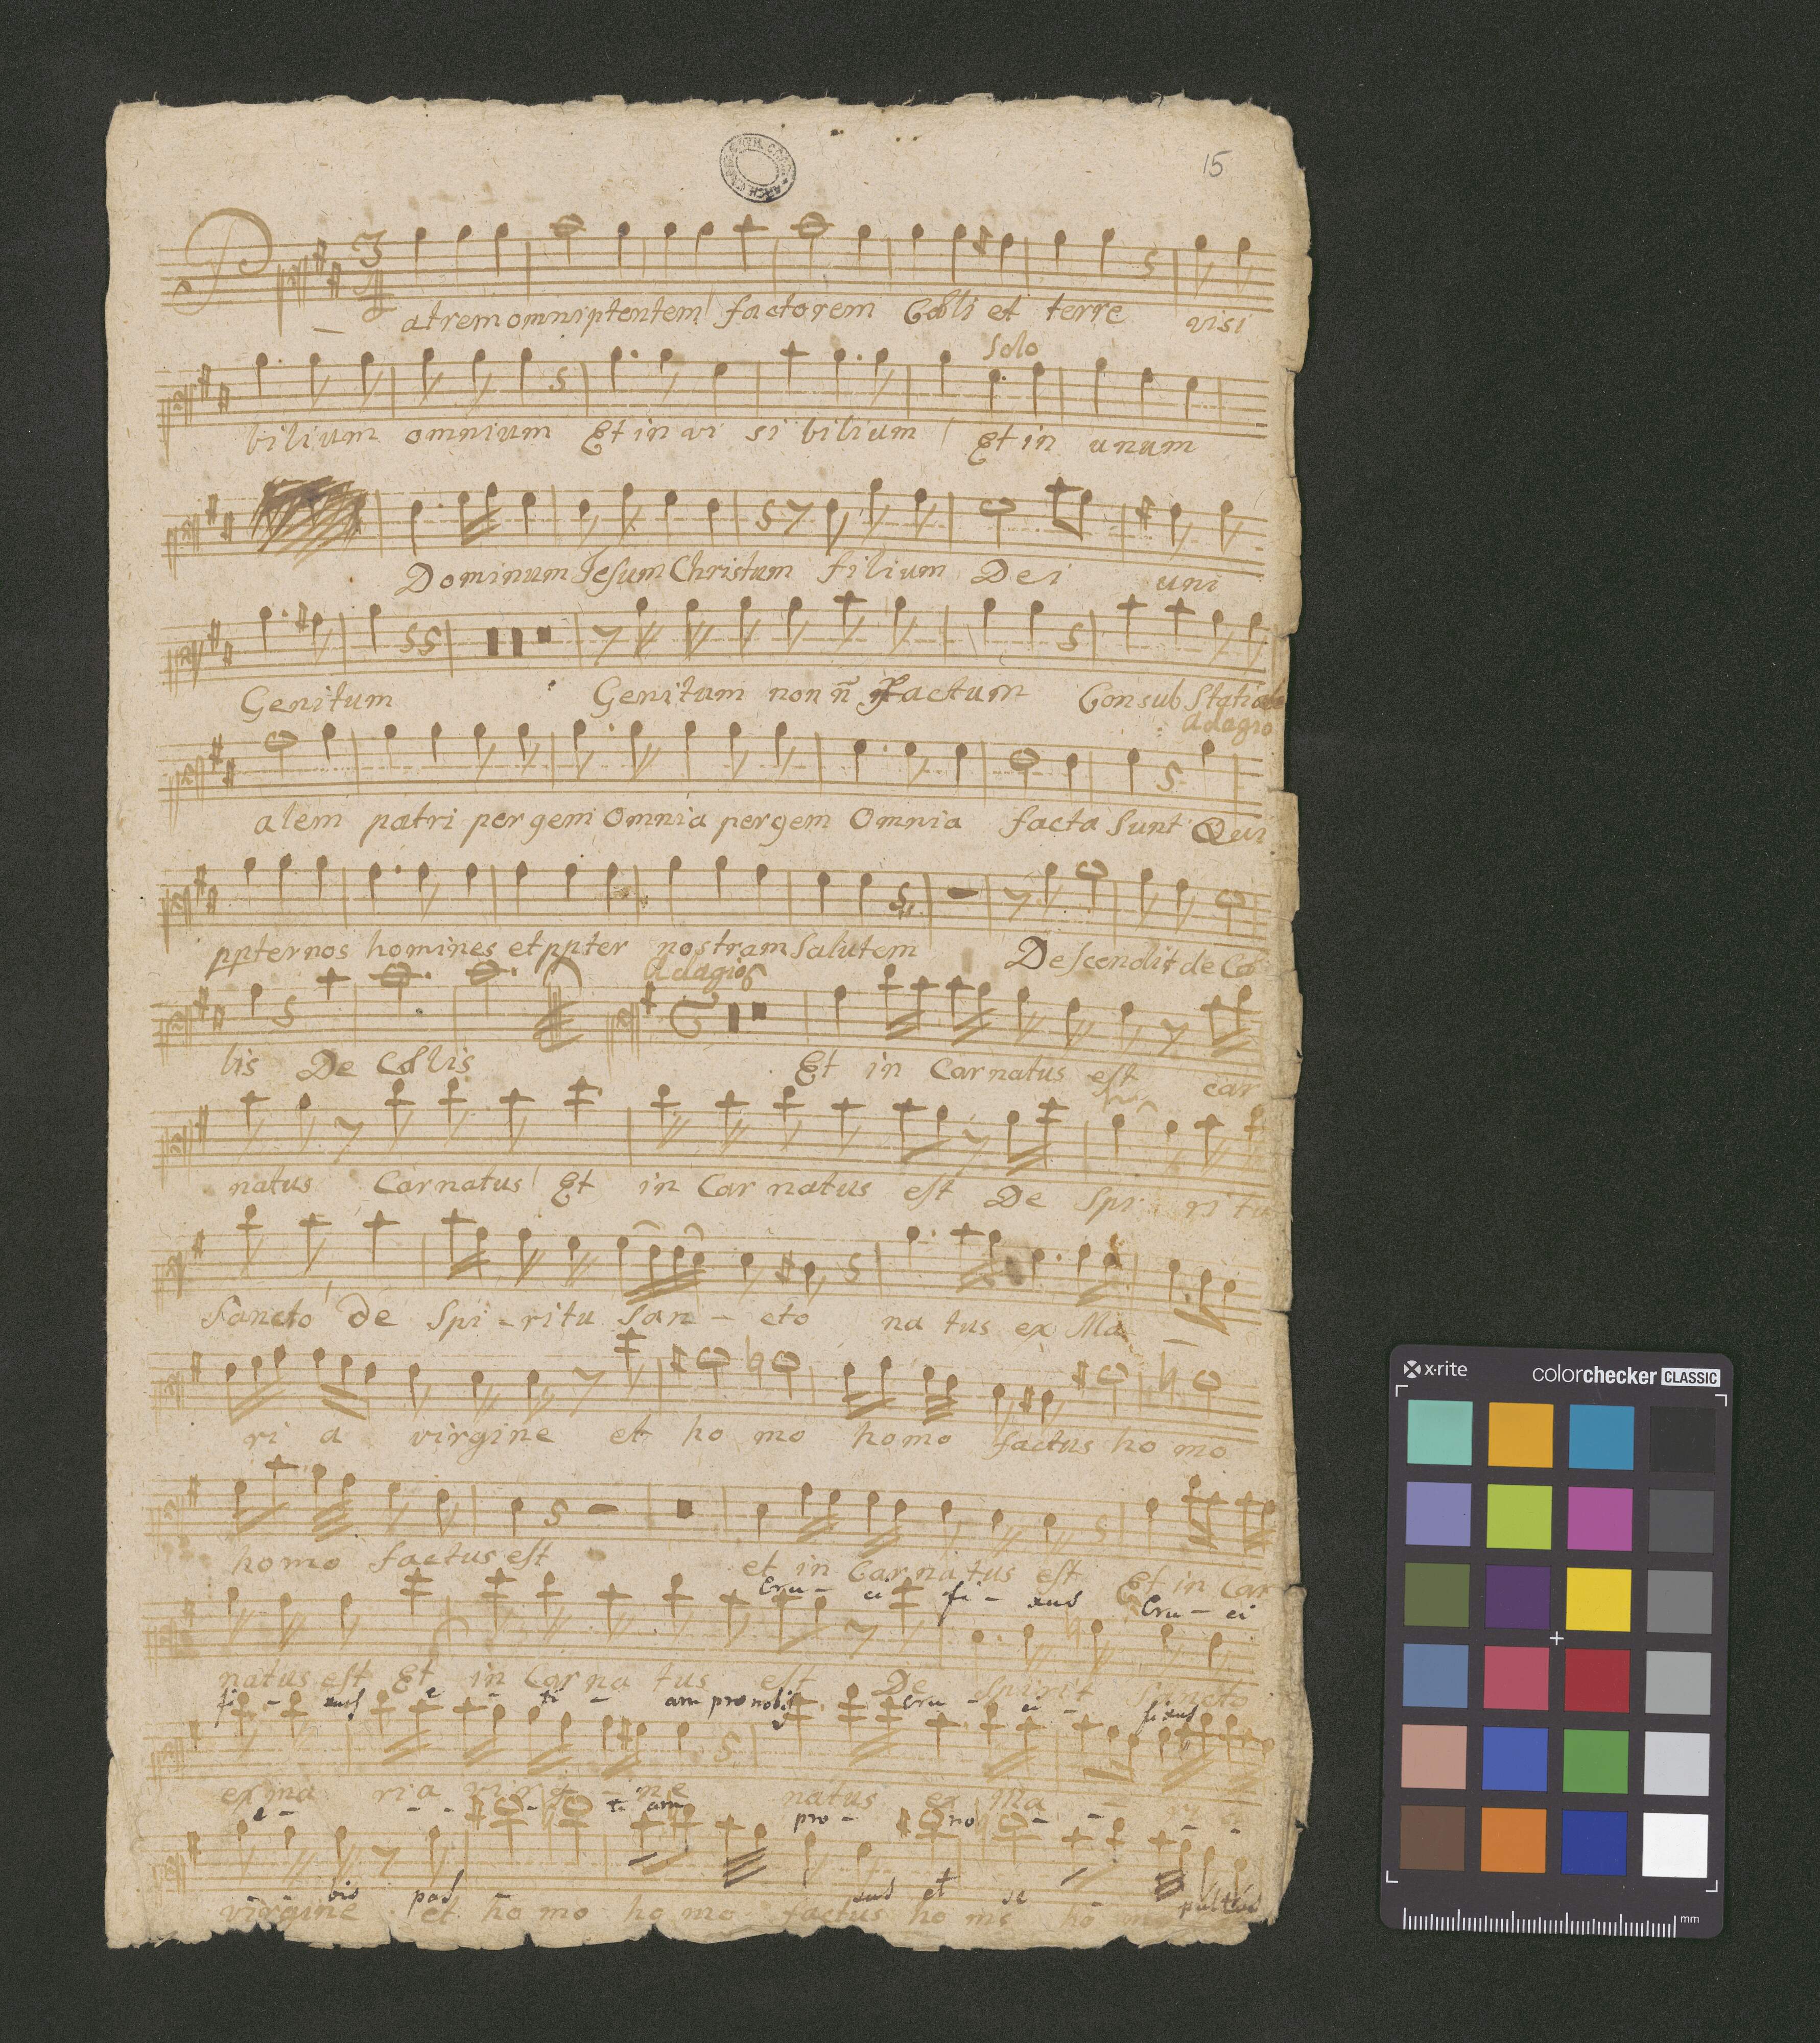 15
3/4
Patrem omniptentem factorem Cœli et terre visi
Solo
bilium omnium Et in vi si bilium Et in unum
Dominum Jesum Christum filium Dei uni
Genitum Genitum non factum Consub
Adagio
alem patri per gem Omnia per gem Omnia facta sunt Qui
ppter nos homines et ppter nostram Salutem Descendit de Cœ
Adagio
lis De Cœlis Et in Carnatus est car
natus Carnatus Et in Carnatus est De Spi ri tu
Sancto de Spi - ritu San - cto na tus ex Ma
ri a virgine et ho mo homo factus ho mo
homo factus est et in Carnatus est Et in Car
Cru - ci fi - xus Cru - ci
natus est Et in Car na tus est De Spirit Sancto
fi - xus e - ti - am pro nobis cru - ci - fixus
ex ma ria virgine natus ex Ma
e - - - - ti am pro - no - - - -
virgine et ho mo homo factus ho mo ho mo
bis pas sus et se pultus
x·rite
colorchecker CLASSIC
mm